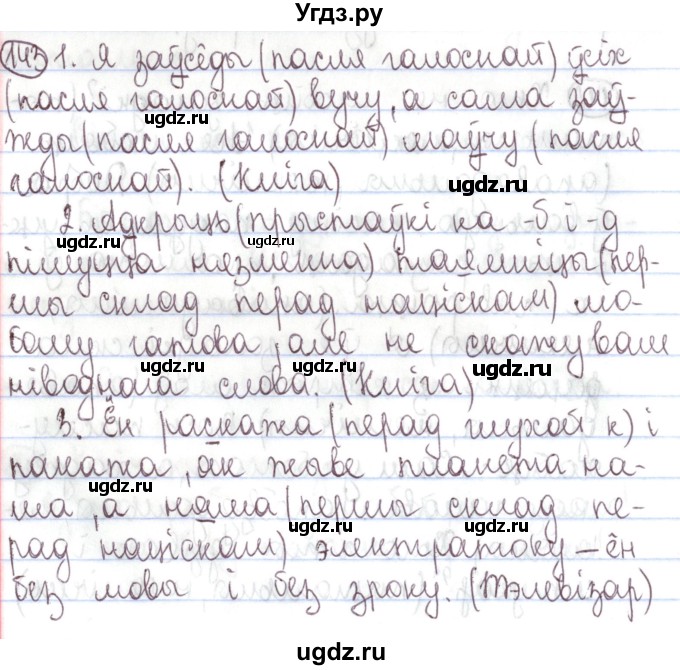 Угдз.ру
143 1. Я заўсёды (пасля галоснай) ўсіх
(пасля галоснай) вучу, а сама заў-
ugdz.ru ugdz.ru
жды (пасля галоснай) маўчу (пасля
ugdz.ru
галоснай). (Кніга) ugdz.ru
2. Адкрыць (прыстаўкі на -б і -д
ugdz.ru ugdz.ru
пішуцца нязменна) таямніцы (пер-
шы склад перад націскам) лю-
ugdz.ru
бому гатова, але не скажу вам
ugdz.ru
ніводнага слова. (Кніга)
ugdz.ru
3. Ён раскажа (перад глухой к) і
пакажа, як жыве планета на-
ugdz.ru
ша, а няма (першы склад пе-
ugdz.ru
рад націскам) электратоку – ён
без мовы і без зроку. (Тэлевізар)
ugdz.ru